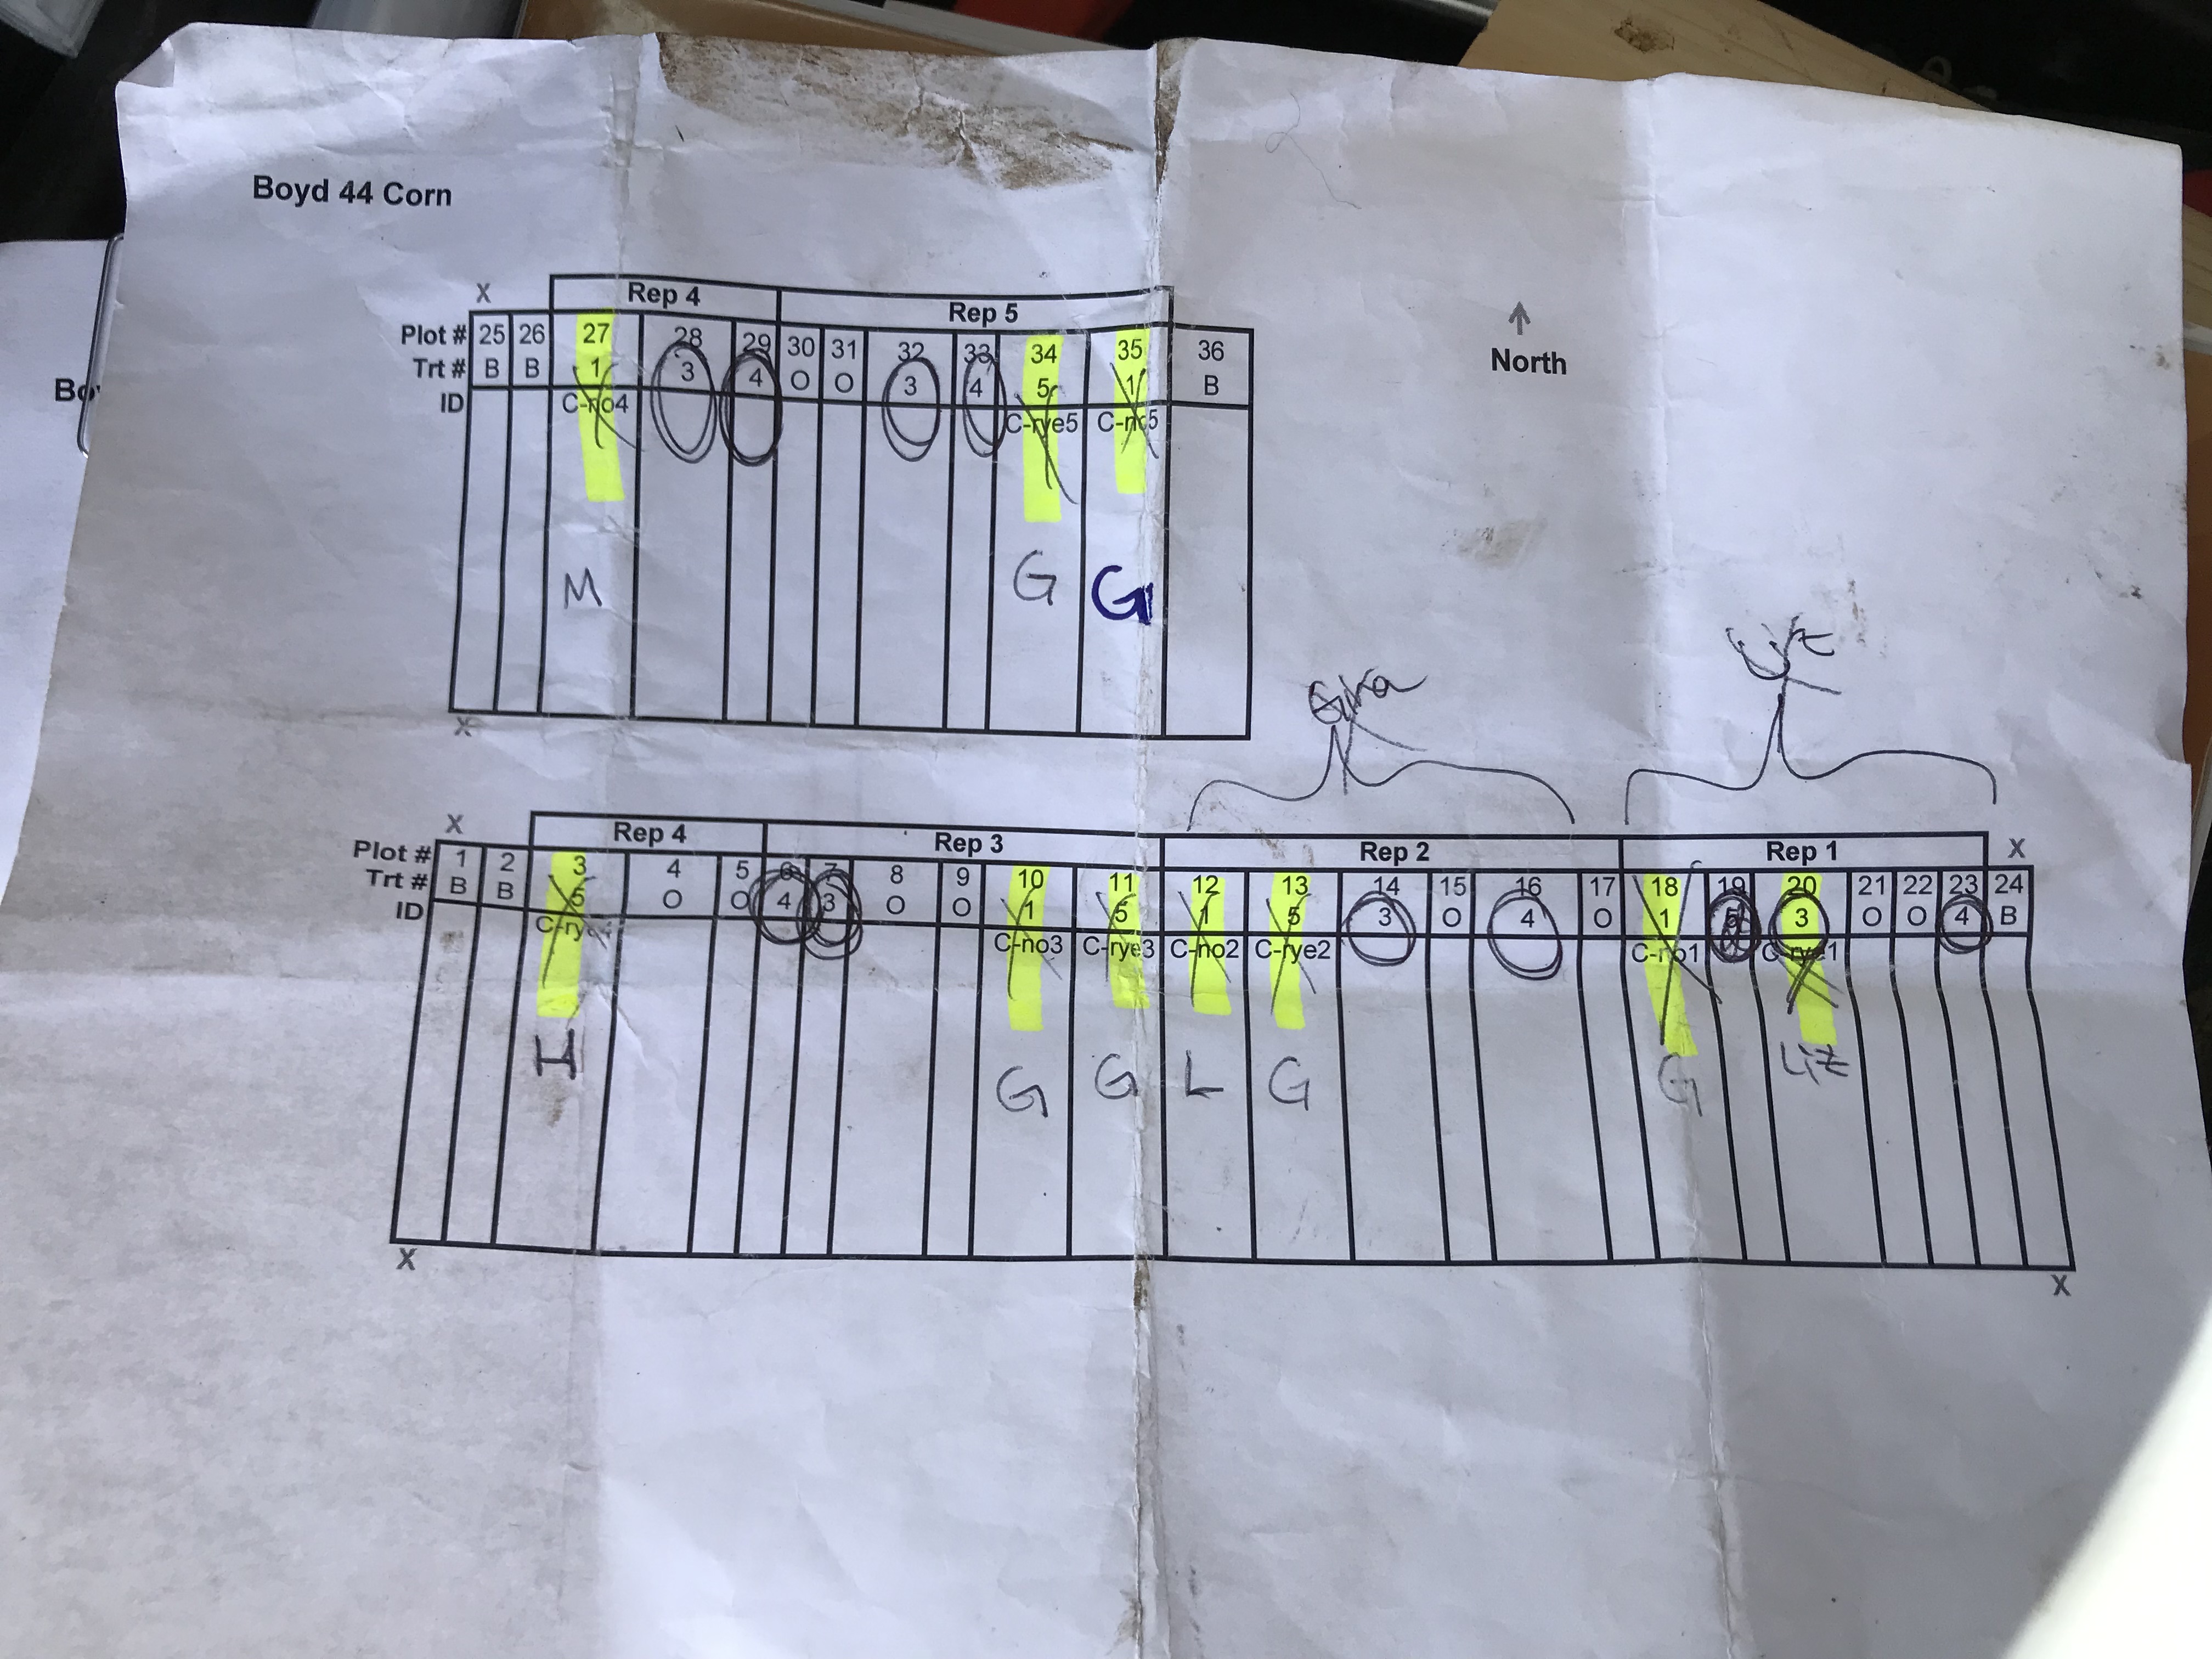 Boyd 44 Corn
North
X
Rep 4 Rep 5
Plot # 25 26 27 28 29 30 31 32 33 34 35 36
Trt # B B 1 3 4 O O 3 4 5 1 B
ID C-no4 C-rye5 C-no5
M G G
X
Gina Liz
X Rep 4 Rep 3 Rep 2 Rep 1 X
Plot # 1 2 3 4 5 6 7 8 9 10 11 12 13 14 15 16 17 18 19 20 21 22 23 24
Trt # B B 5 O O 4 3 O O 1 5 1 5 3 O 4 O 1 5 3 O O 4 B
ID C-no3 C-rye3 C-no2 C-rye2 C-no1 C-rye1
H G G L G G Liz
X X